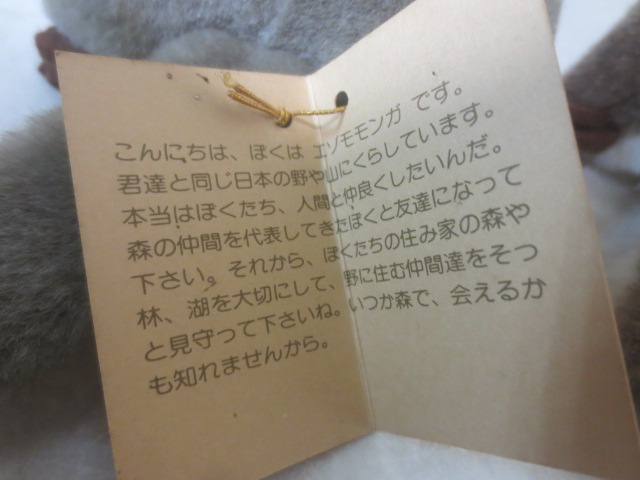 こんにちは、ぼくは エゾモモンガ です。
君達と同じ日本の野や山にくらしています。
本当はぼくたち、人間と仲良くしたいんだ。
森の仲間を代表してきたぼくと友達になって
下さい。それから、ぼくたちの住み家の森や
林、湖を大切にして、野に住む仲間達をそっ
と見守って下さいね。いつか森で、会えるか
も知れませんから。